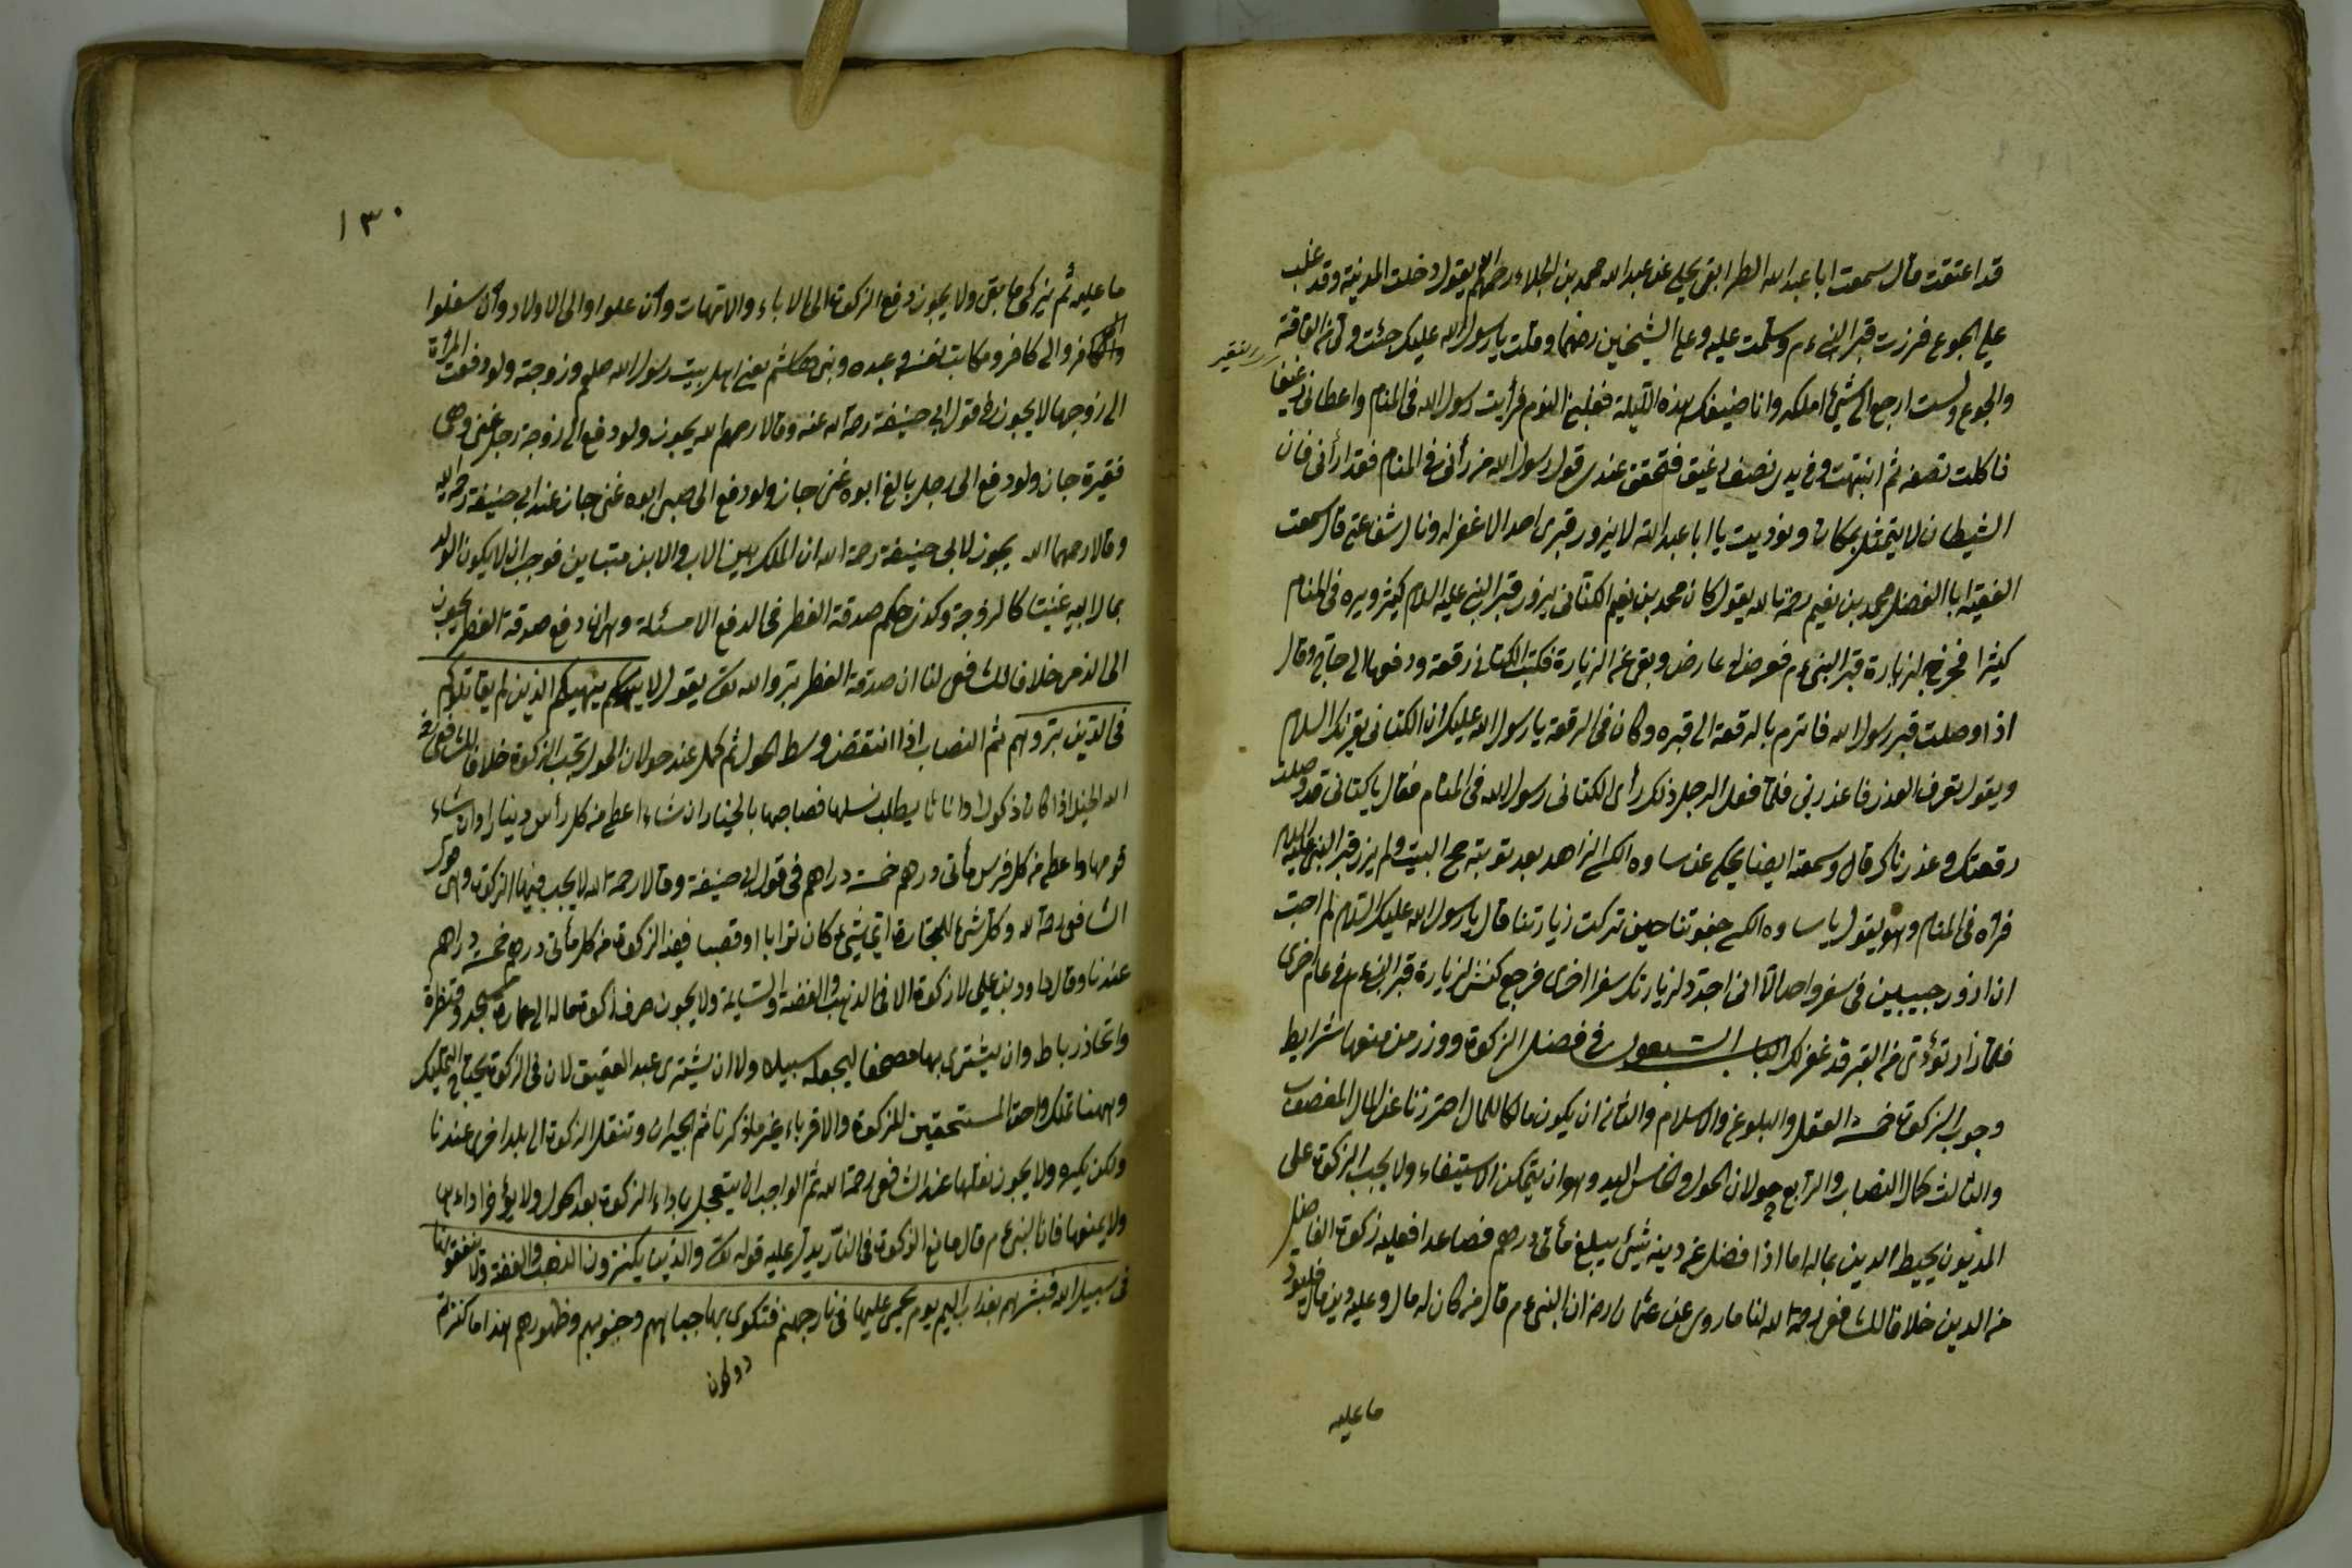 قد اعتقت قال سمعت ابا عبد الله الطرابقى يحكى عن عبد الله محمد بن الجلاء رحمهم الله يقول دخلت المدينة وقد غلب
على الجوع فزرت قبر النبى ءم وسلمت عليه وعلى الشيخين رضهما وقلت يا رسول الله عليك جئت وبى من الفاقة
والجوع ولست ارجع الى شئ املكه وانا ضيفك بهذه الليلة فغلبنى النوم فرأيت رسول الله فى المنام واعطانى رغيفا
فاكلت نصفه ثم انتبهت وفى يدى نصف رغيف فتحقق عندى قول رسول الله من رأنى فى المنام فقد رأنى فان
الشيطان لا يتمثل بمكانى ونوديت يا ابا عبد الله لا يزور قبرى احد الا غفر له ونال شفاعتى قال سمعت
الفقيه ابا الفضل محمد بن نعيم رحمة الله يقول كان محمد بن نعيم الكتانى يزور قبر النبى عليه السلام كثيرا ويره فى المنام
كثيرا فخرج لزيارة قبر النبى ءم فعرض له عارض وبقى عن الزيارة فكتب الكتانى رقعة ودفعها الى حاج وقال
اذا وصلت قبر رسول الله فاترم بالرقعة الى قبره وكان فى الرقعة يا رسول الله عليك ان الكتانى يقرئك السلام
ويقول تعرف العذر فاعذرنى فلما فعل الرجل ذلك رأى الكتانى رسول الله فى المنام فقال يا كتانى قد وصلت
رقعتك وعذرناك قال وسمعته ايضا يحكى عن الزاهد بعد توبته حج البيت ولم يزر قبر النبى عليه السلام
فرآه فى المنام وهو يقول يا جفوتنا حين تركت زيارتنا قال يا رسول الله عليك السلام لم احب
ان ازور حبيبين فى سفر واحد الا انى اجدد لزيارتك سفرا اخرى فرجع لزيارة قبر النبى ءم فى عام اخرى
فلما زار نودى من القبر قد غفر لك الباب السبعون فى فضل الزكوة ووزر من منعها شرايط
وجوب الزكوة خمسة العقل والبلوغ والاسلام والثانى ان يكون مالكا للمال احترزنا عن المال المغصوب
والثالث كمال النصاب والرابع حولان الحول والخامس اليد وهو ان يتمكن الاستيفاء ولا يجب الزكوة على
المديون يحيط الدين بماله اما اذا فضل عن دينه شئ يبلغ مأتى درهم فصاعدا فعليه زكوة الفاضل
من الدين خلافا للشافعى رحمة الله لنا ما روى عن عثمان رض ان النبى ءم قال من كان له مال وعليه دين مال فليؤد
ما عليه
١٣٠
ما عليه ثم يزكى ما بقى ولا يجوز دفع الزكوة الى الاباء والامهات وان علوا والى الاولاد وان سفلوا
والى كافر ومكاتب نفسه وعبده وبنى هاشم يعنى اهل بيت رسول الله صلعم وزوجته ولو دفعت المرأة
الى زوجها لا يجوز فى قول ابى حنيفة رحمة الله عنه وقالا رحمهما الله يجوز ولو دفع الى زوجة رجل غنى وهى
فقيرة جاز ولو دفع الى رجل بالغ ابوه غنى جاز ولو دفع الى صبى ابوه غنى جاز عند ابى حنيفة رحمة الله
وقالا رحمهما الله يجوز لابى حنيفة رحمة الله ان الملك بين الاب والابن متباين فوجب ان لا يكون الولد
بمال ابيه غنيا كالزوجة وكذى حكم صدقة الفطر فى الدفع الا مسئلة وهى ان دفع صدقة الفطر يجوز
الى الذمى خلافا للشافعى لنا ان صدقة الفطر بتر والله تعالى يقول لا ينهيكم الذين لم يقاتلوكم
فى الدين تبروهم ثم النصاب اذا انتقض وسط الحول ثم كمل عند حولان الحول تجب الزكوة خلافا للشافعى رحمه
الله الخيل اذا كان ذكورا واناثا يطلب نسلها فصاحبها بالخيار ان شاء اعطى من كل رأس دينارا وان شاء
قومها واعطى من كل فرس مأتى درهم خمسة دراهم فى قول ابى حنيفة وقالا رحمة الله لا يجب فيها الزكوة وهو قول
الشافعى رحمة الله وكل شئ للتجارة اى شئ كان ترابا او قصبا فيه الزكوة من كل مأتى درهم خمسة دراهم
عندنا وقال داود بن على لا زكوة الا فى الذهب والفضة والسايمة ولا يجوز صرف زكوة ماله الى عمارة مسجد وقنطرة
واتخاذ رباط وان يشترى بها مصحفا ليجعله سبيلا ولا ان يشترى عبد العتيق لان فى الزكوة يحتاج التمليك
وههنا تملك واحق المستحقين للزكوة والاقرباء غير ما ذكرنا ثم الجيران وتنقل الزكوة الى بلد اخرى عندنا
ولكن يكره ولا يجوز نقلها عند الشافعى رحمة الله ثم الواجب ان يتعجل باداء الزكوة بعد الحول ولا يؤخر اداءها
ولا يمنعها فان النبى ءم قال مانع الزكوة فى النار يدل عليه قوله تعالى والذين يكنزون الذهب والفضة ولا ينفقونها
فى سبيل الله فبشرهم بعذاب اليم يوم يحمى عليها فى نار جهنم فتكوى بها جباههم وجنوبهم وظهورهم هذا ما كنزتم